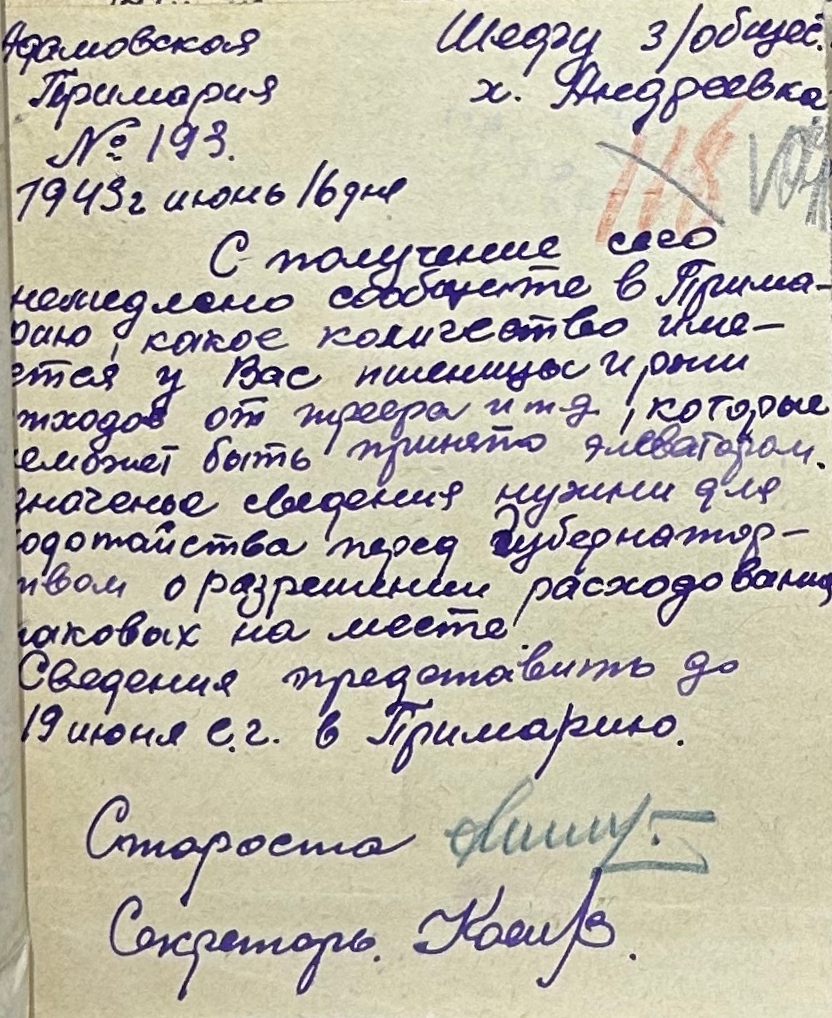 Адамовская Шефу з/общес.
Примария х. Андреевка
№ 193. 118
1943г июнь 16 дня
С получение сего
немедлено сообщите в Прима-
рию, какое количество име-
ется у Вас пшеницы и ржи
отходов от треера и т.д., которые
неможет быть принято элеватором.
значенье сведения нужни для
ходотайства перед Губернатор-
твом о разрешении расходования
таковых на месте.
Сведения представить до
19 июня с.г. в Примарию.
Староста
Секретарь.